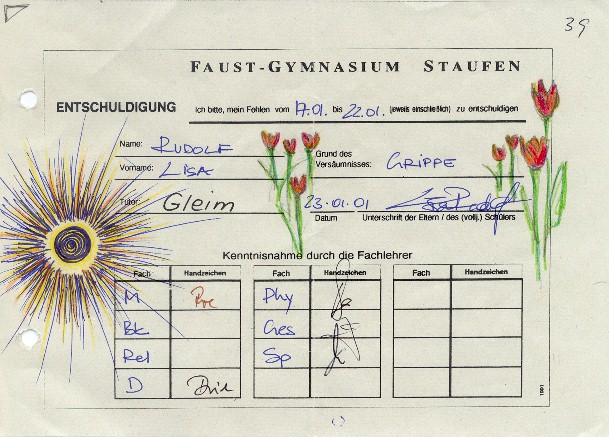 39
FAUST-GYMNASIUM STAUFEN
ENTSCHULDIGUNG Ich bitte, mein Fehlen vom 17.01. bis 22.01. (jeweils einschließlich) zu entschuldigen
Name: RUDOLF
Vorname: LISA
Grund des Versäumnisses: GRIPPE
Tutor: Gleim 23.01.01
Datum Unterschrift der Eltern / des (vollj.) Schülers
Kenntnisnahme durch die Fachlehrer
Fach Handzeichen Fach Handzeichen Fach Handzeichen
M Phy
Bk Ges
Rel Sp
D
1991